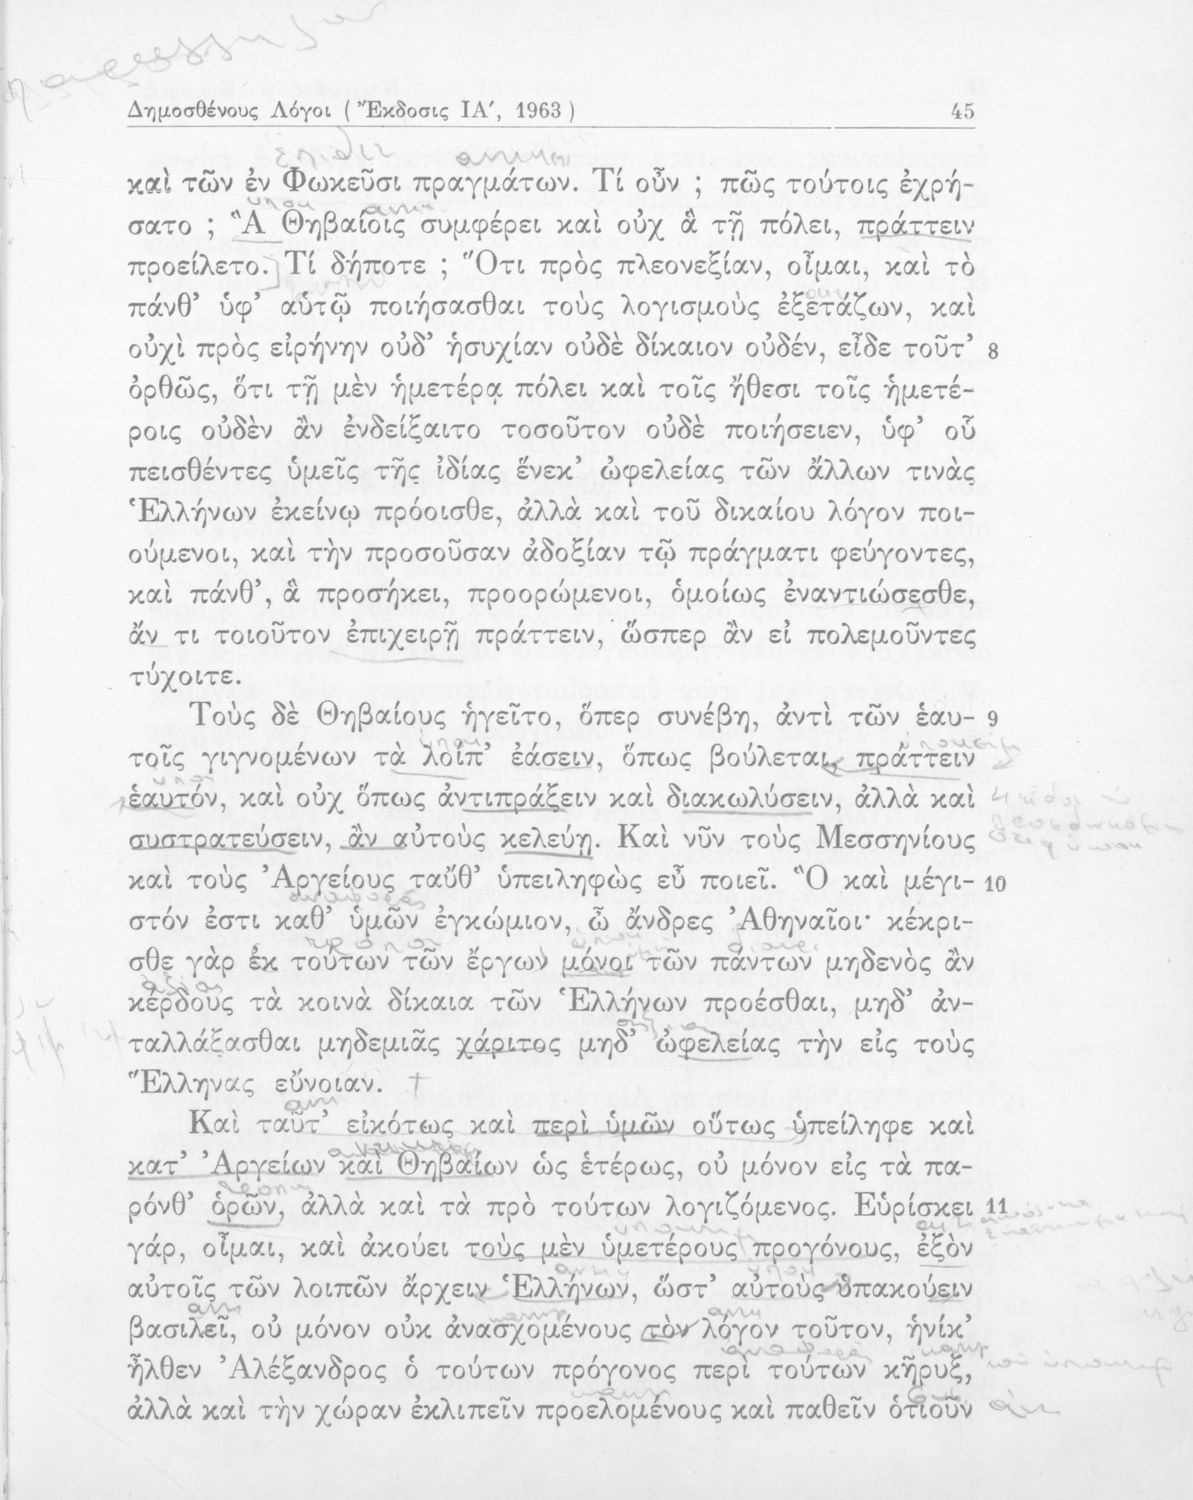 Δημοσθένους Λόγοι ( Ἔκδοσις ΙΑ′, 1963 ) 45
καὶ τῶν ἐν Φωκεῦσι πραγμάτων. Τί οὖν ; πῶς τούτοις ἐχρή-
σατο ; Ἃ Θηβαίοις συμφέρει καὶ οὐχ ἃ τῇ πόλει, πράττειν
προείλετο. Τί δήποτε ; Ὅτι πρὸς πλεονεξίαν, οἶμαι, καὶ τὸ
πάνθ’ ὑφ’ αὑτῷ ποιήσασθαι τοὺς λογισμοὺς ἐξετάζων, καὶ
οὐχὶ πρὸς εἰρήνην οὐδ’ ἡσυχίαν οὐδὲ δίκαιον οὐδέν, εἶδε τοῦτ’ 8
ὀρθῶς, ὅτι τῇ μὲν ἡμετέρᾳ πόλει καὶ τοῖς ἤθεσι τοῖς ἡμετέ-
ροις οὐδὲν ἂν ἐνδείξαιτο τοσοῦτον οὐδὲ ποιήσειεν, ὑφ’ οὗ
πεισθέντες ὑμεῖς τῆς ἰδίας ἕνεκ’ ὠφελείας τῶν ἄλλων τινὰς
Ἑλλήνων ἐκείνῳ πρόοισθε, ἀλλὰ καὶ τοῦ δικαίου λόγον ποι-
ούμενοι, καὶ τὴν προσοῦσαν ἀδοξίαν τῷ πράγματι φεύγοντες,
καὶ πάνθ’, ἃ προσήκει, προορώμενοι, ὁμοίως ἐναντιώσεσθε,
ἄν τι τοιοῦτον ἐπιχειρῇ πράττειν, ὥσπερ ἂν εἰ πολεμοῦντες
τύχοιτε.
Τοὺς δὲ Θηβαίους ἡγεῖτο, ὅπερ συνέβη, ἀντὶ τῶν ἑαυ- 9
τοῖς γιγνομένων τὰ λοίπ’ ἐάσειν, ὅπως βούλεται, πράττειν
ἑαυτόν, καὶ οὐχ ὅπως ἀντιπράξειν καὶ διακωλύσειν, ἀλλὰ καὶ
συστρατεύσειν, ἂν αὐτοὺς κελεύῃ. Καὶ νῦν τοὺς Μεσσηνίους
καὶ τοὺς Ἀργείους ταὔθ’ ὑπειληφὼς εὖ ποιεῖ. Ὃ καὶ μέγι- 10
στόν ἐστι καθ’ ὑμῶν ἐγκώμιον, ὦ ἄνδρες Ἀθηναῖοι· κέκρι-
σθε γὰρ ἐκ τούτων τῶν ἔργων μόνοι τῶν πάντων μηδενὸς ἂν
κέρδους τὰ κοινὰ δίκαια τῶν Ἑλλήνων προέσθαι, μηδ’ ἀν-
ταλλάξασθαι μηδεμιᾶς χάριτος μηδ’ ὠφελείας τὴν εἰς τοὺς
Ἕλληνας εὔνοιαν.
Καὶ ταῦτ’ εἰκότως καὶ περὶ ὑμῶν οὕτως ὑπείληφε καὶ
κατ’ Ἀργείων καὶ Θηβαίων ὡς ἑτέρως, οὐ μόνον εἰς τὰ πα-
ρόνθ’ ὁρῶν, ἀλλὰ καὶ τὰ πρὸ τούτων λογιζόμενος. Εὑρίσκει 11
γάρ, οἶμαι, καὶ ἀκούει τοὺς μὲν ὑμετέρους προγόνους, ἐξὸν
αὐτοῖς τῶν λοιπῶν ἄρχειν Ἑλλήνων, ὥστ’ αὐτοὺς ὑπακούειν
βασιλεῖ, οὐ μόνον οὐκ ἀνασχομένους τὸν λόγον τοῦτον, ἡνίκ’
ἦλθεν Ἀλέξανδρος ὁ τούτων πρόγονος περὶ τούτων κῆρυξ,
ἀλλὰ καὶ τὴν χώραν ἐκλιπεῖν προελομένους καὶ παθεῖν ὁτιοῦν